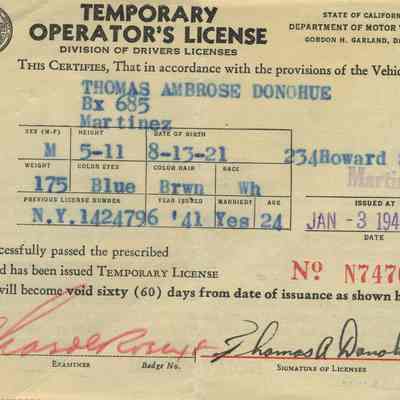 TEMPORARY
OPERATOR'S LICENSE
DIVISION OF DRIVERS LICENSES
STATE OF CALIFOR
DEPARTMENT OF MOTOR
GORDON H. GARLAND, DI
THIS CERTIFIES, That in accordance with the provisions of the Vehic
THOMAS AMBROSE DONOHUE
Bx 685
Martinez
SEX (M-F) HEIGHT DATE OF BIRTH
M 5-11 8-13-21 234Howard S
WEIGHT COLOR EYES COLOR HAIR RACE
175 Blue Brwn Wh Martin
PREVIOUS LICENSE NUMBER YEAR ISSUED MARRIED? AGE ISSUED AT
N.Y.1424796 '41 Yes 24 JAN -3 194
DATE
ccessfully passed the prescribed
d has been issued TEMPORARY LICENSE
No N747
ill become void sixty (60) days from date of issuance as shown h
Thomas A Donoh
EXAMINER Badge No. SIGNATURE OF LICENSEE